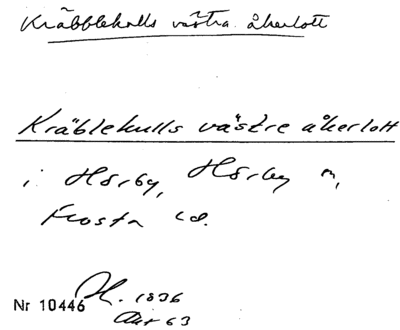 Kräbblekulls västra åkerlott
Kräblekulls västre åkerlott
i Hörby, Hörby m,
Frosta hd.
Nr 10446 1836
Akt 63